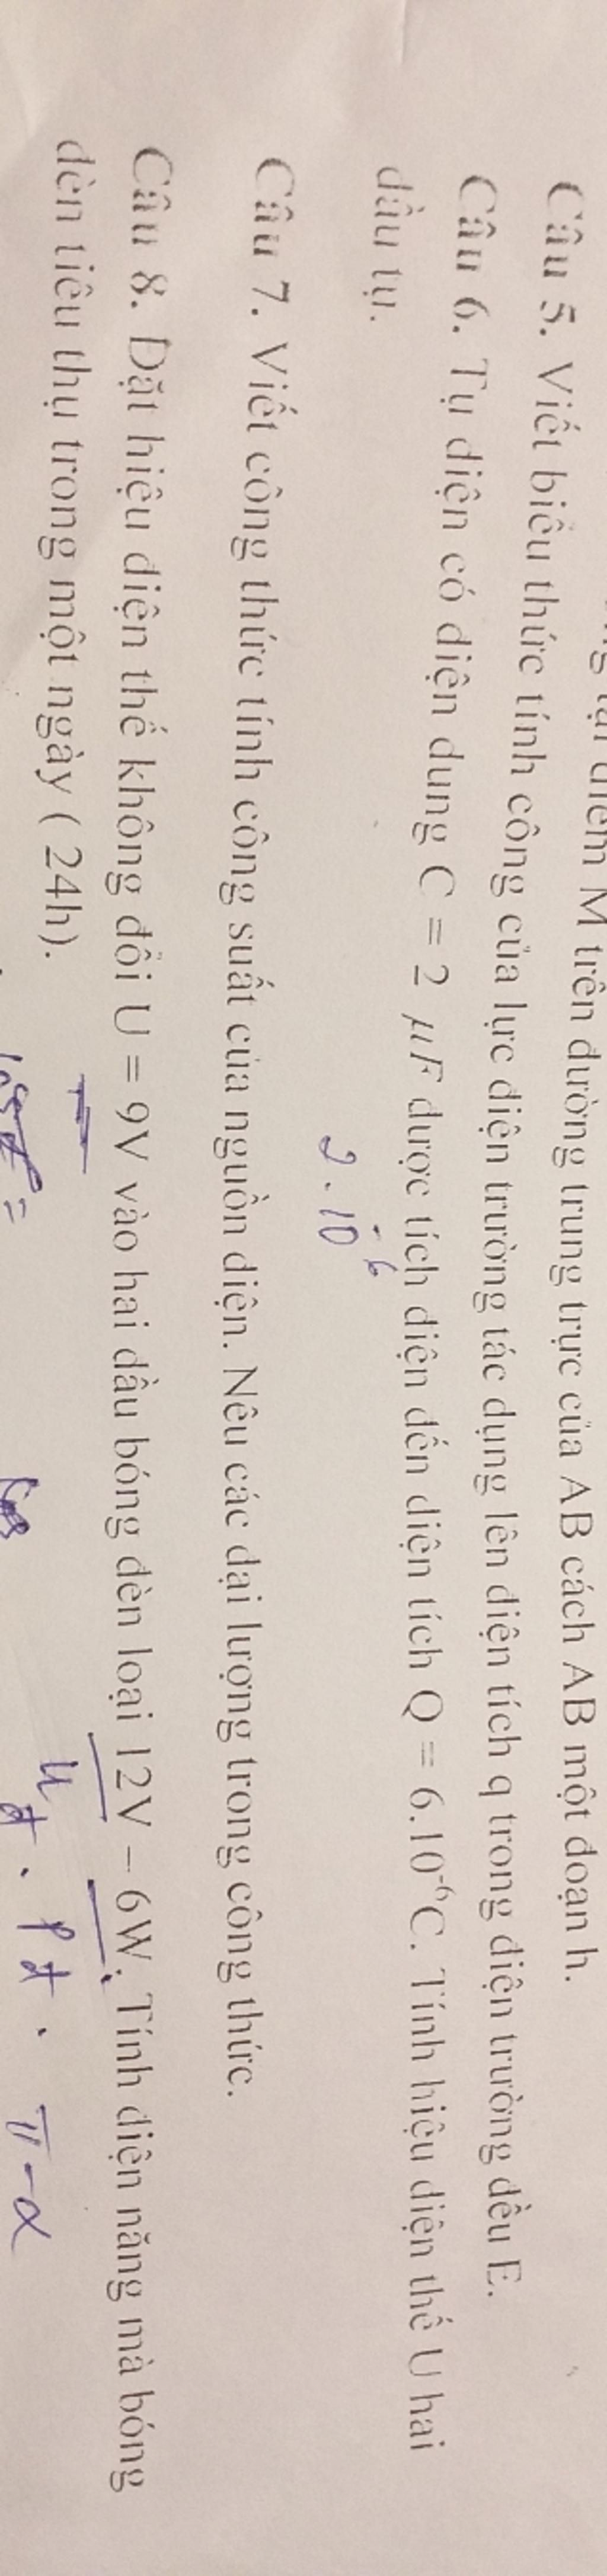 tại điểm M trên đường trung trực của AB cách AB một đoạn h.
Câu 5. Viết biểu thức tính công của lực điện trường tác dụng lên điện tích q trong điện trường đều E.
Câu 6. Tụ điện có điện dung C = 2 μF được tích điện đến điện tích Q = 6.10⁻⁶C. Tính hiệu điện thế U hai
đầu tụ.
2.10⁻⁶
Câu 7. Viết công thức tính công suất của nguồn điện. Nêu các đại lượng trong công thức.
Câu 8. Đặt hiệu điện thế không đổi U = 9V vào hai đầu bóng đèn loại 12V – 6W. Tính điện năng mà bóng
đèn tiêu thụ trong một ngày ( 24h).
π-α